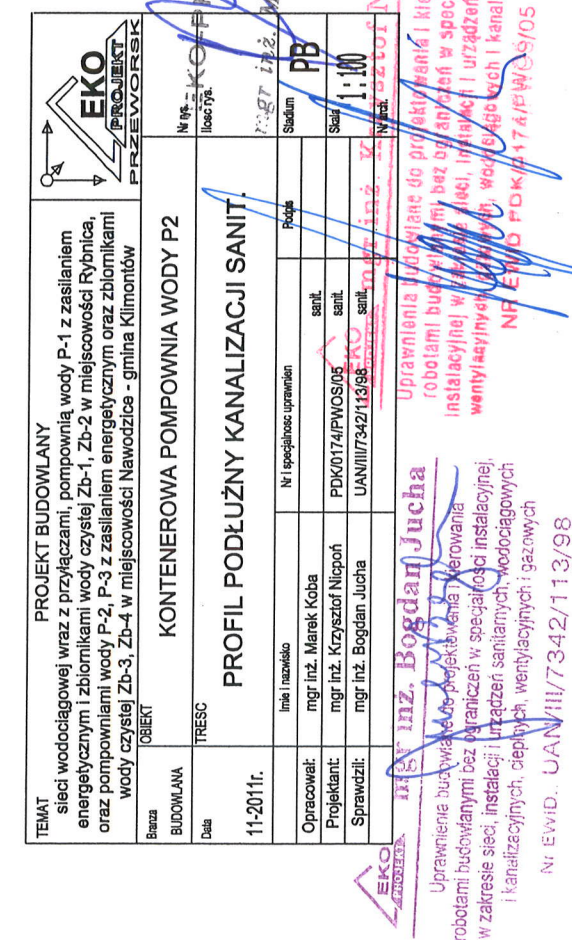 TEMAT
PROJEKT BUDOWLANY
sieci wodociągowej wraz z przyłączami, pompownią wody P-1 z zasilaniem
energetycznym i zbiornikami wody czystej Zb-1, Zb-2 w miejscowości Rybnica,
oraz pompowniami wody P-2, P-3 z zasilaniem energetycznym oraz zbiornikami
wody czystej Zb-3, Zb-4 w miejscowości Nawodzice - gmina Klimontów
EKO
PROJEKT
PRZEWORSK
Branza
BUDOWLANA
OBIEKT
KONTENEROWA POMPOWNIA WODY P2
Nr rys.
Ilosc rys.
Data
11-2011r.
TRESC
PROFIL PODŁUŻNY KANALIZACJI SANIT.
Imie i nazwisko
Nr i specjalnosc uprawnien
Podpis
Stadium
PB
Opracował:
mgr inż. Marek Koba
sanit.
Projektant:
mgr inż. Krzysztof Nicpoń
PDK/0174/PWOS/05
sanit.
Skala
1:100
Sprawdził:
mgr inż. Bogdan Jucha
UAN/III/7342/113/98
sanit.
Nr arch.
EKO
PROJEKT
mgr inż. Bogdan Jucha
Uprawnienia budowlane do projektowania i kierowania
robotami budowlanymi bez ograniczeń w specjalności instalacyjnej,
w zakresie sieci, instalacji i urządzeń sanitarnych, wodociągowych
i kanalizacyjnych, cieplnych, wentylacyjnych i gazowych
Nr EWID. UAN/III/7342/113/98
EKO
mgr inż. Krzysztof
Uprawnienia budowlane do projektowania i
robotami budowlanymi bez ograniczeń w
instalacyjnej w zakresie sieci, instalacji i
wentylacyjnych, gazowych, wodociągowych i
NR EWID PDK/0174/PWOS/05
mgr inż.